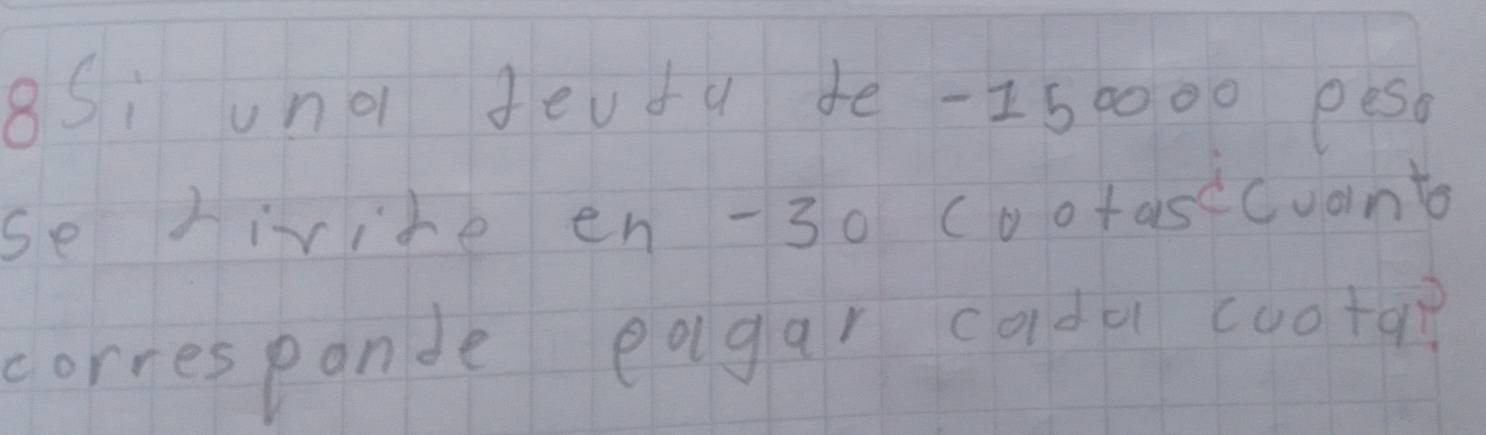 8 Si una deuda de -150000 peso
se divide en -30 cuotas ¿Cuanto
corresponde pagar cada cuota?